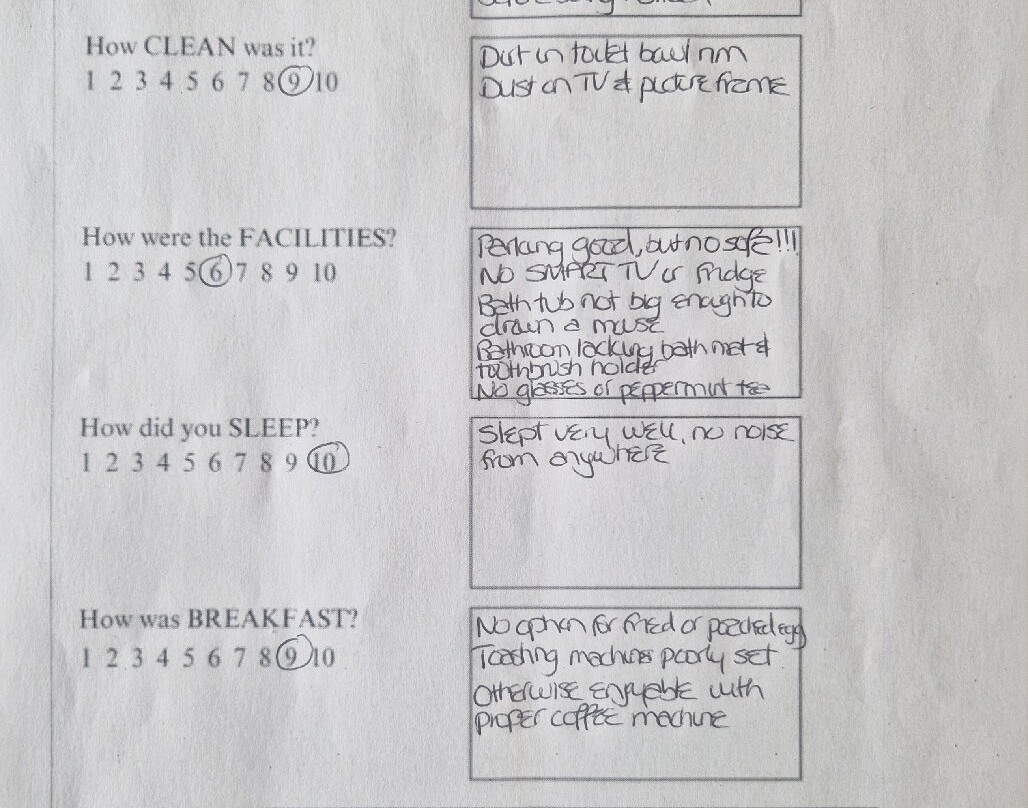 How CLEAN was it?
1 2 3 4 5 6 7 8 9 10
Dirt in toilet bowl rim
Dust on TV & picture frame
How were the FACILITIES?
1 2 3 4 5 6 7 8 9 10
Parking good, but no safe!!!
No SMART TV or fridge
Bath tub not big enough to
drown a mouse
Bathroom lacking bath mat &
toothbrush holder
No glasses or peppermint tea
How did you SLEEP?
1 2 3 4 5 6 7 8 9 10
Slept very well, no noise
from anywhere
How was BREAKFAST?
1 2 3 4 5 6 7 8 9 10
No option for fried or poached egg
Toasting machine poorly set
Otherwise enjoyable with
proper coffee machine